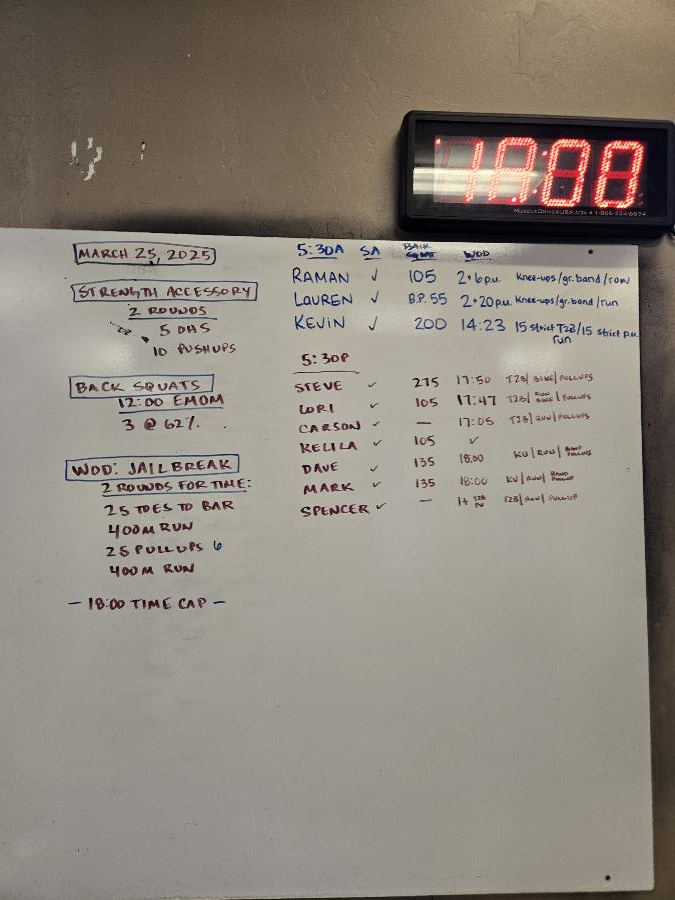 18:00
MUSCLEDRIVERUSA.COM • 1-866-554-6074
MARCH 25, 2025
STRENGTH ACCESSORY
2 ROUNDS
5 OHS
10 PUSHUPS
BACK SQUATS
12:00 EMOM
3 @ 62%.
WOD: JAILBREAK
2 ROUNDS FOR TIME:
25 TOES TO BAR
400M RUN
25 PULLUPS 6
400M RUN
- 18:00 TIME CAP -
5:30A SA BACK SQUAT WOD
RAMAN ✓ 105 2+6p.u. Knee-ups/gr.band/row
LAUREN ✓ B.P. 55 2+20p.u. Knee-ups/gr.band/run
KEVIN ✓ 200 14:23 15 strict T2B/15 strict p.u.
run
5:30P
STEVE ✓ 275 17:50 T2B/BIKE/PULLUPS
LORI ✓ 105 17:47 T2B/ /PULLUPS
CARSON ✓ — 17:05 T2B/RUN/PULLUPS
KELILA ✓ 105 ✓
DAVE ✓ 135 18:00 KU/ROW/BAND PULLUPS
MARK ✓ 135 18:00 KU/ROW/BAND PULLUP
SPENCER ✓ — 1+ T2B/ROW/PULLUP